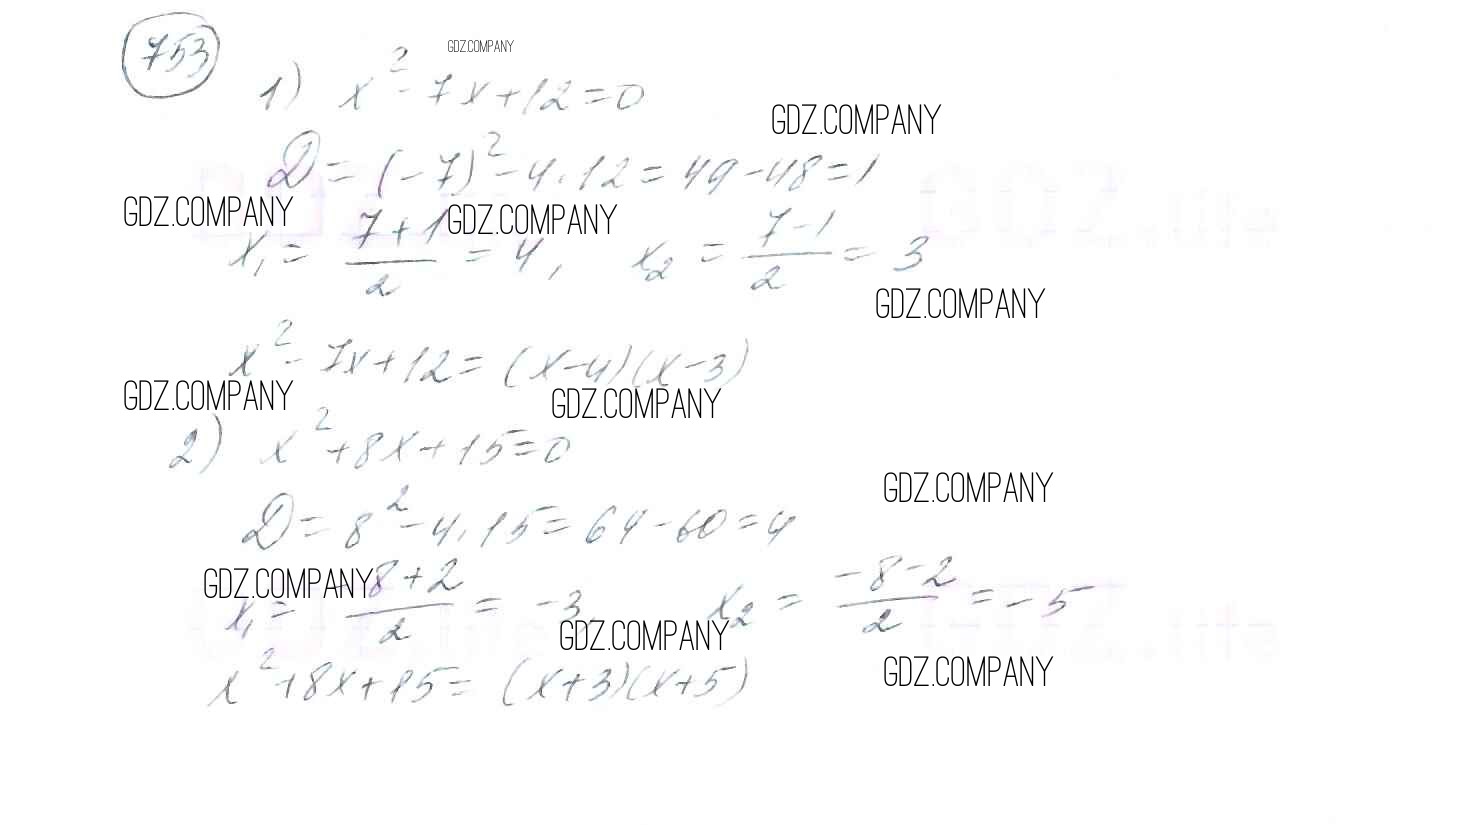 753
GDZ.COMPANY
1) x² - 7x + 12 = 0
GDZ.COMPANY
D = (-7)² - 4 · 12 = 49 - 48 = 1
GDZ.COMPANY GDZ.COMPANY
x₁ = (7+1)/2 = 4, x₂ = (7-1)/2 = 3
GDZ.COMPANY
x² - 7x + 12 = (x-4)(x-3)
GDZ.COMPANY GDZ.COMPANY
2) x² + 8x + 15 = 0
GDZ.COMPANY
D = 8² - 4 · 15 = 64 - 60 = 4
GDZ.COMPANY
x₁ = (-8+2)/2 = -3, x₂ = (-8-2)/2 = -5
GDZ.COMPANY
x² + 8x + 15 = (x+3)(x+5)
GDZ.COMPANY